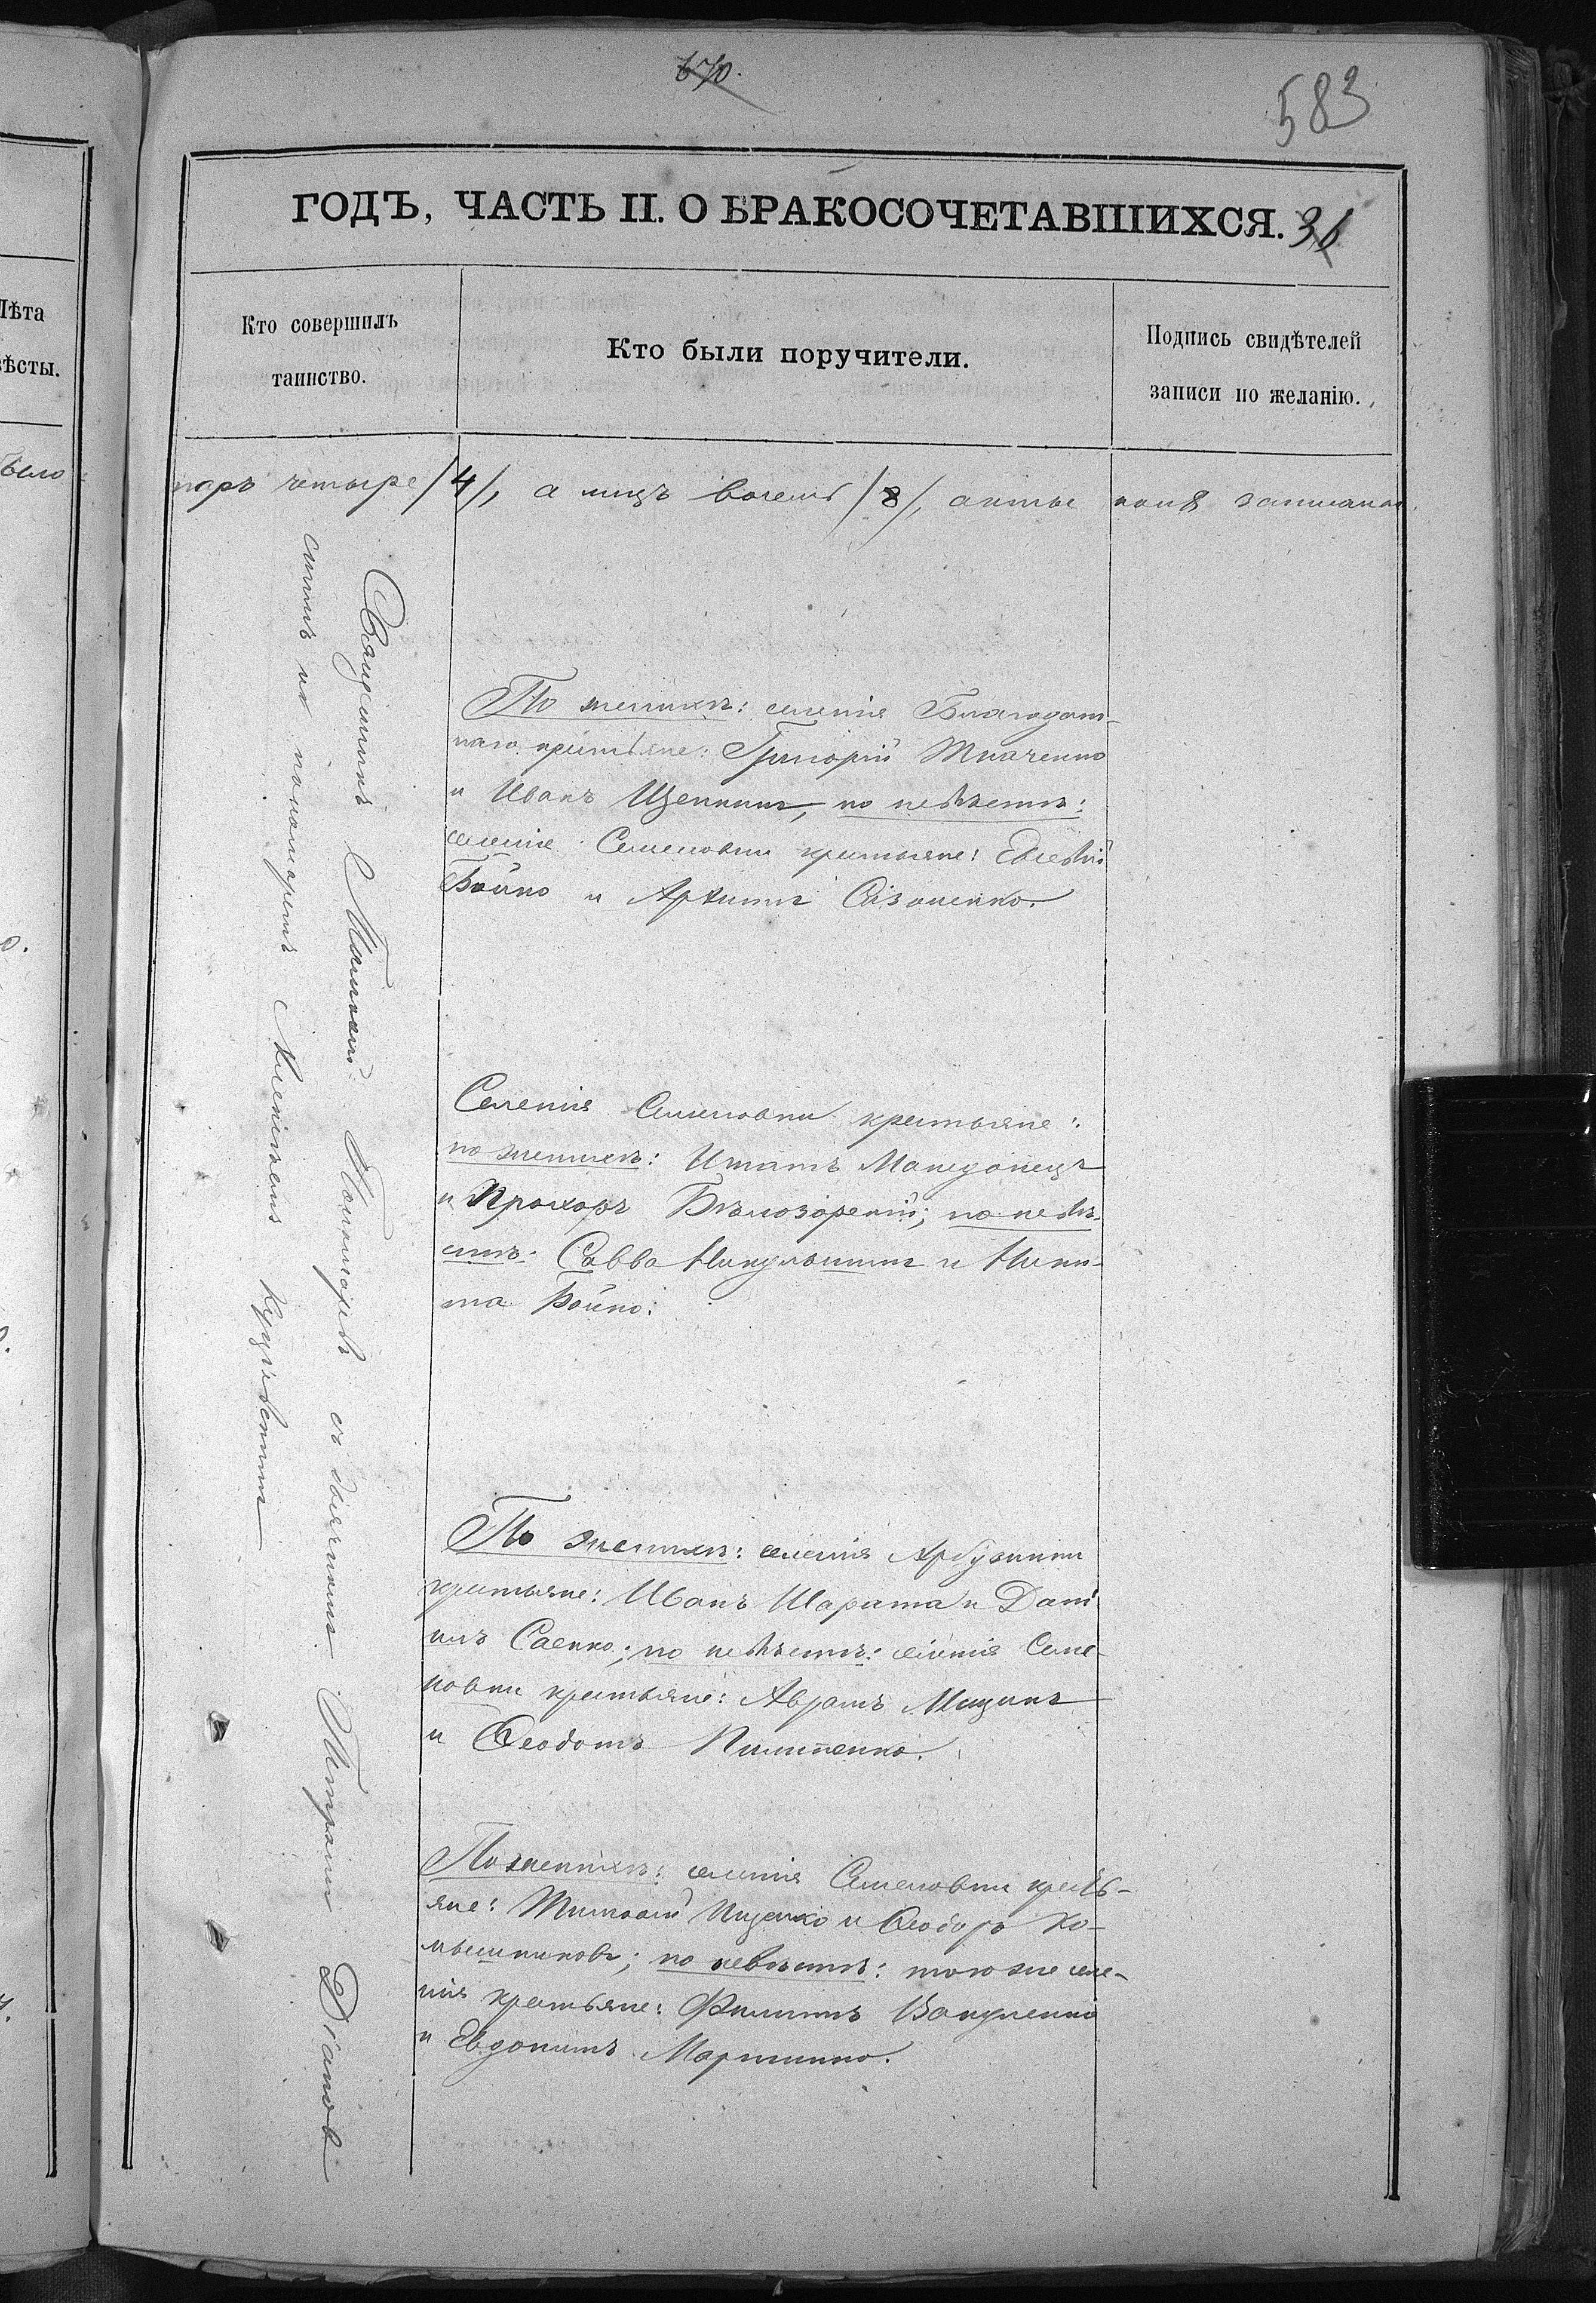 670.
583
ГОДЪ, ЧАСТЬ II. О БРАКОСОЧЕТАВШИХСЯ. 36
Лѣта
вѣсты.
Кто совершилъ
таинство.
Кто были поручители.
Подпись свидѣтелей
записи по желанію.
было
паръ четыре /4/, а лицъ восемь /8/, актье записаны.
Священникъ съ дьячкомъ Діаков
и пономаремъ
По женихѣ: селенія Благодат-
наго крестьяне: Григорій Ткаченко
и Иванъ по невѣстѣ:
селенія Семеновки крестьяне: Евсевій
Бойко и Архипъ Сазоненко.
Селенія Семеновки крестьяне:
по женихѣ: Игнатъ Македонецъ
и Прохоръ Бѣлозорскій; по невѣ-
стѣ: Савва Никульшин и Ники-
та Бойко:
По женихѣ: селенія Арбузинки
крестьяне: Иванъ Шарата и Дані
илъ Саенко; по невѣстѣ: селенія Семе-
новки крестьяне: Аврамъ Мицикъ
и Ѳеодотъ Пилипенко.
По женихѣ: селенія Семеновки кресть-
яне: Тимоѳей Ищенко и Ѳеодоръ Ко-
мышниковъ; по невѣстѣ: того же селе-
нія крестьяне: Филиппъ Вакуленко
и Евдокимъ Мартинко.